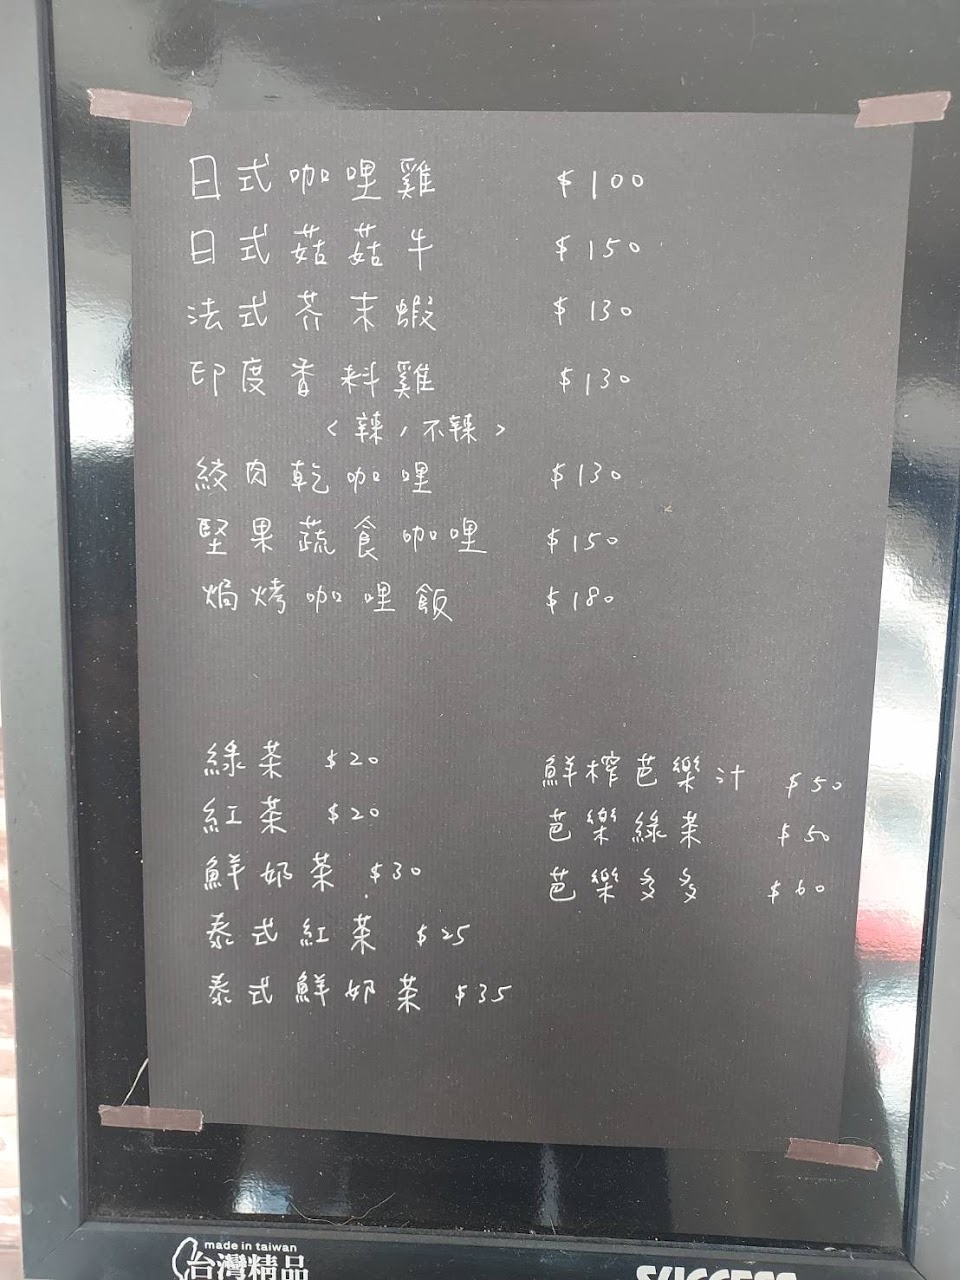 日式咖哩雞 $100
日式菇菇牛 $150
法式芥末蝦 $130
印度香料雞 $130
<辣/不辣>
絞肉乾咖哩 $130
堅果蔬食咖哩 $150
焗烤咖哩飯 $180
綠茶 $20
紅茶 $20
鮮奶茶 $30
泰式紅茶 $25
泰式鮮奶茶 $35
鮮榨芭樂汁 $50
芭樂綠茶 $50
芭樂多多 $60
made in taiwan
台灣精品
SUCCESS